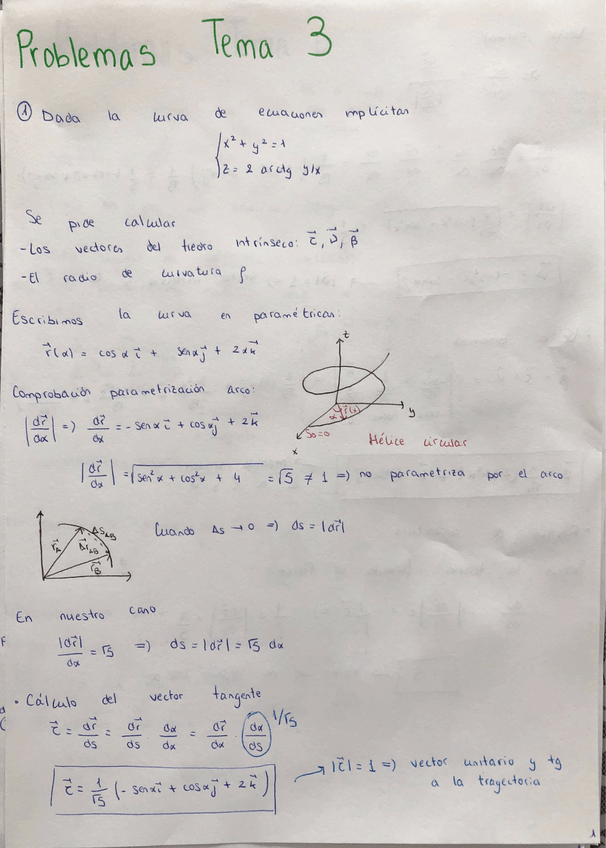 Problemas Tema 3
① Dada la curva de ecuaciones implícitas
x² + y² = 1
z = 2 arctg y/x
Se pide calcular
- Los vectores del triedro intrínseco: τ⃗, ν⃗, β⃗
- El radio de curvatura ρ
Escribimos la curva en paramétricas:
r⃗(α) = cos α i⃗ + sen α j⃗ + 2α k⃗
z
y
x
α
r⃗(α)
S₀=0
Hélice circular
Comprobación parametrización arco:
|dr⃗/dα| => dr⃗/dα = - sen α i⃗ + cos α j⃗ + 2 k⃗
|dr⃗/dα| = √(sen²α + cos²α + 4) = √5 ≠ 1 => no parametriza por el arco
ΔS_AB
Δr⃗_AB
r⃗_A
r⃗_B
Cuando Δs → 0 => ds = |dr⃗|
En nuestro caso
|dr⃗|/dα = √5 => ds = |dr⃗| = √5 dα
· Cálculo del vector tangente
τ⃗ = dr⃗/ds = dr⃗/ds · dα/dα = dr⃗/dα · dα/ds 1/√5
τ⃗ = 1/√5 (- sen α i⃗ + cos α j⃗ + 2 k⃗)
|τ⃗| = 1 => vector unitario y tg
a la trayectoria
1